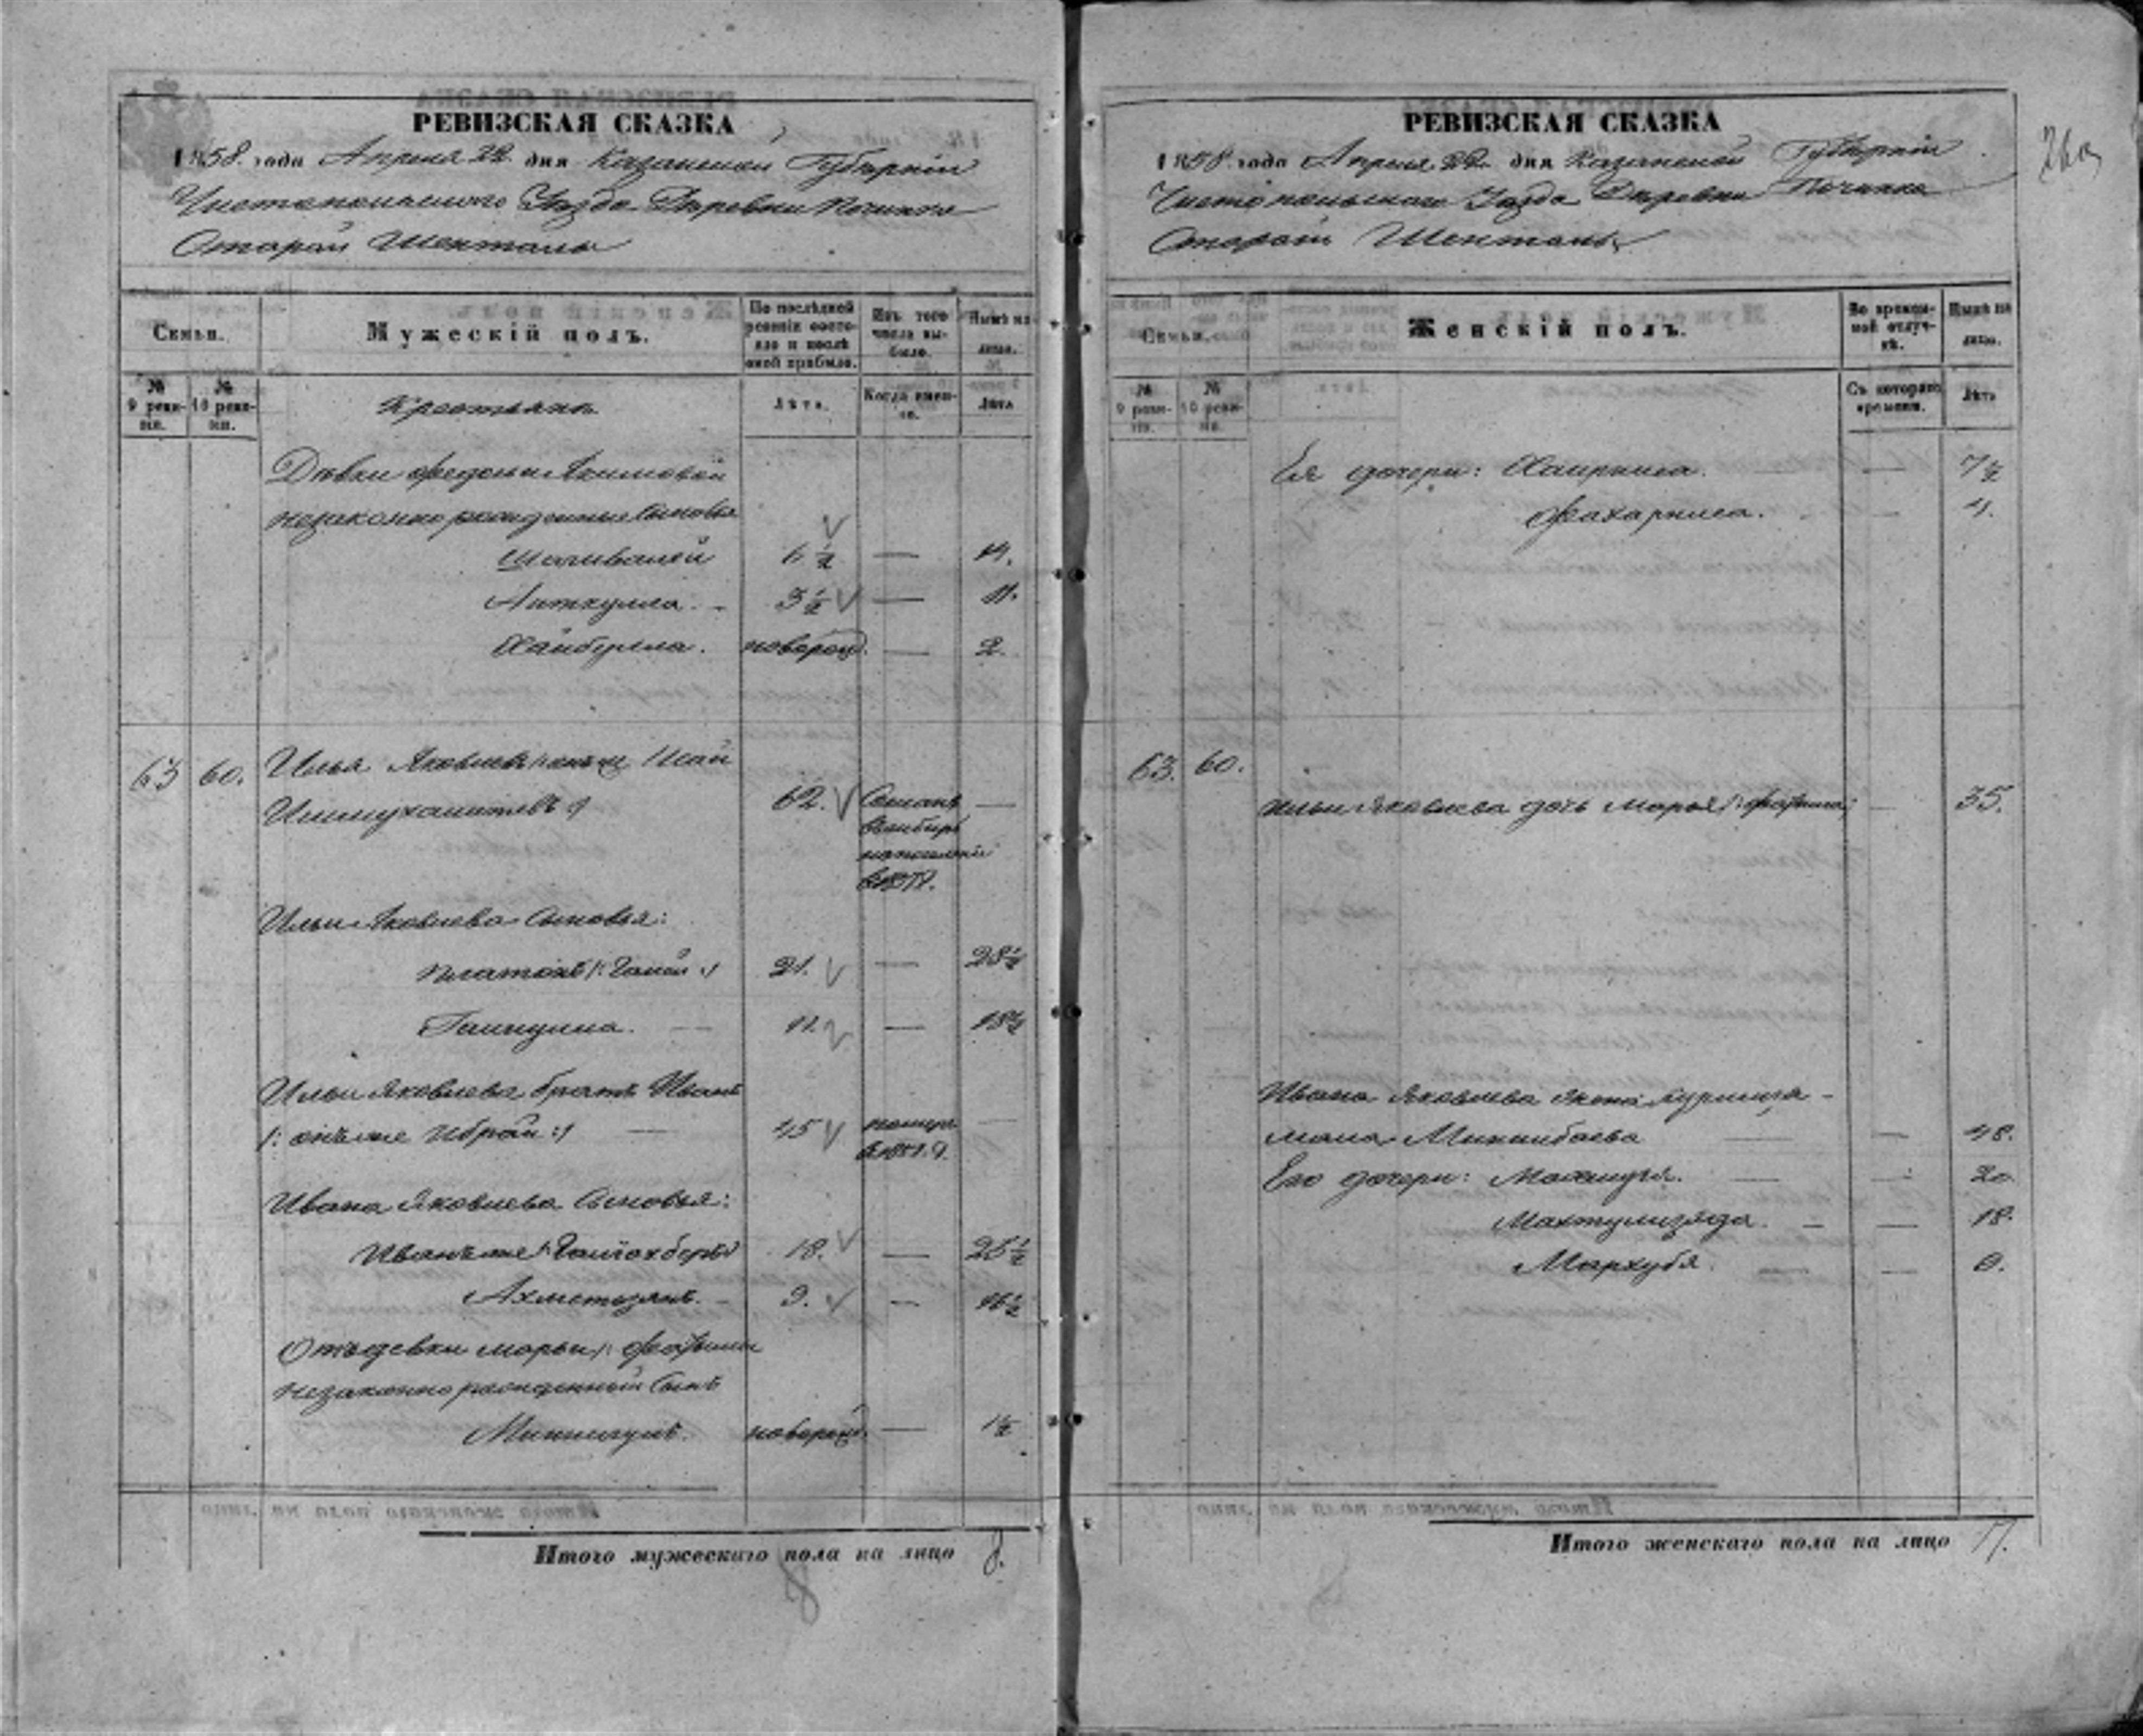 РЕВИЗСКАЯ СКАЗКА
1858. года Апреля 22 дня Казанской Губерніи
Чистопольскаго Уезда Деревни Починка
Старой Шенталы
Семьи.
Мужескій полъ.
По послѣдней ревизіи состояло и послѣ оной прибыло.
Изъ того числа выбыло.
Нынѣ на лицо.
№ 9 ревизіи.
№ 10 ревизіи.
Крестьяне
Лѣта.
Когда именно.
Лѣта
Девки Федосьи Якимовой
незаконно рожденные сыновья
Шагивалей 6½ — 14.
Аиткулла. 3½ — 11.
Хайбулла. новорож. — 2.
63 60. Илья Яковлев онъже Исай
62. Сосланъ —
въ Сибирь
на поселеніе
Ильи Яковлева сыновья:
Платонъ 21. — 28½
11. — 18½
Ильи Яковлева братъ Иванъ
/: онъже Ибрай :/ — 45 помер —
в 1851. г.
Ивана Яковлева сыновья:
18. — 25½
Ахметзянъ. 9. — 16½
Отъ девки Марьи
незаконно рожденный сынъ
новорож. — 1½
Итого мужескаго пола на лицо 8.
РЕВИЗСКАЯ СКАЗКА
1858. года Апреля 22 дня Казанской Губерніи
Чистопольскаго Уезда Деревни Починка
Старой Шенталы
26
Семьи.
Женскій полъ.
Во временной отлучкѣ.
Нынѣ на лицо.
№ 9 ревизіи.
№ 10 ревизіи.
Съ котораго времени.
Лѣта
Ея дочери: Хаирниса. — 7½
Фахарниса. — 4.
63. 60.
Ильи Яковлева дочь Марья — 35.
Ивана Яковлева жена
Миннибаева — 48.
Его дочери: — 20
Махтумзяда. — 18.
Мархубя. —
Итого женскаго пола на лицо